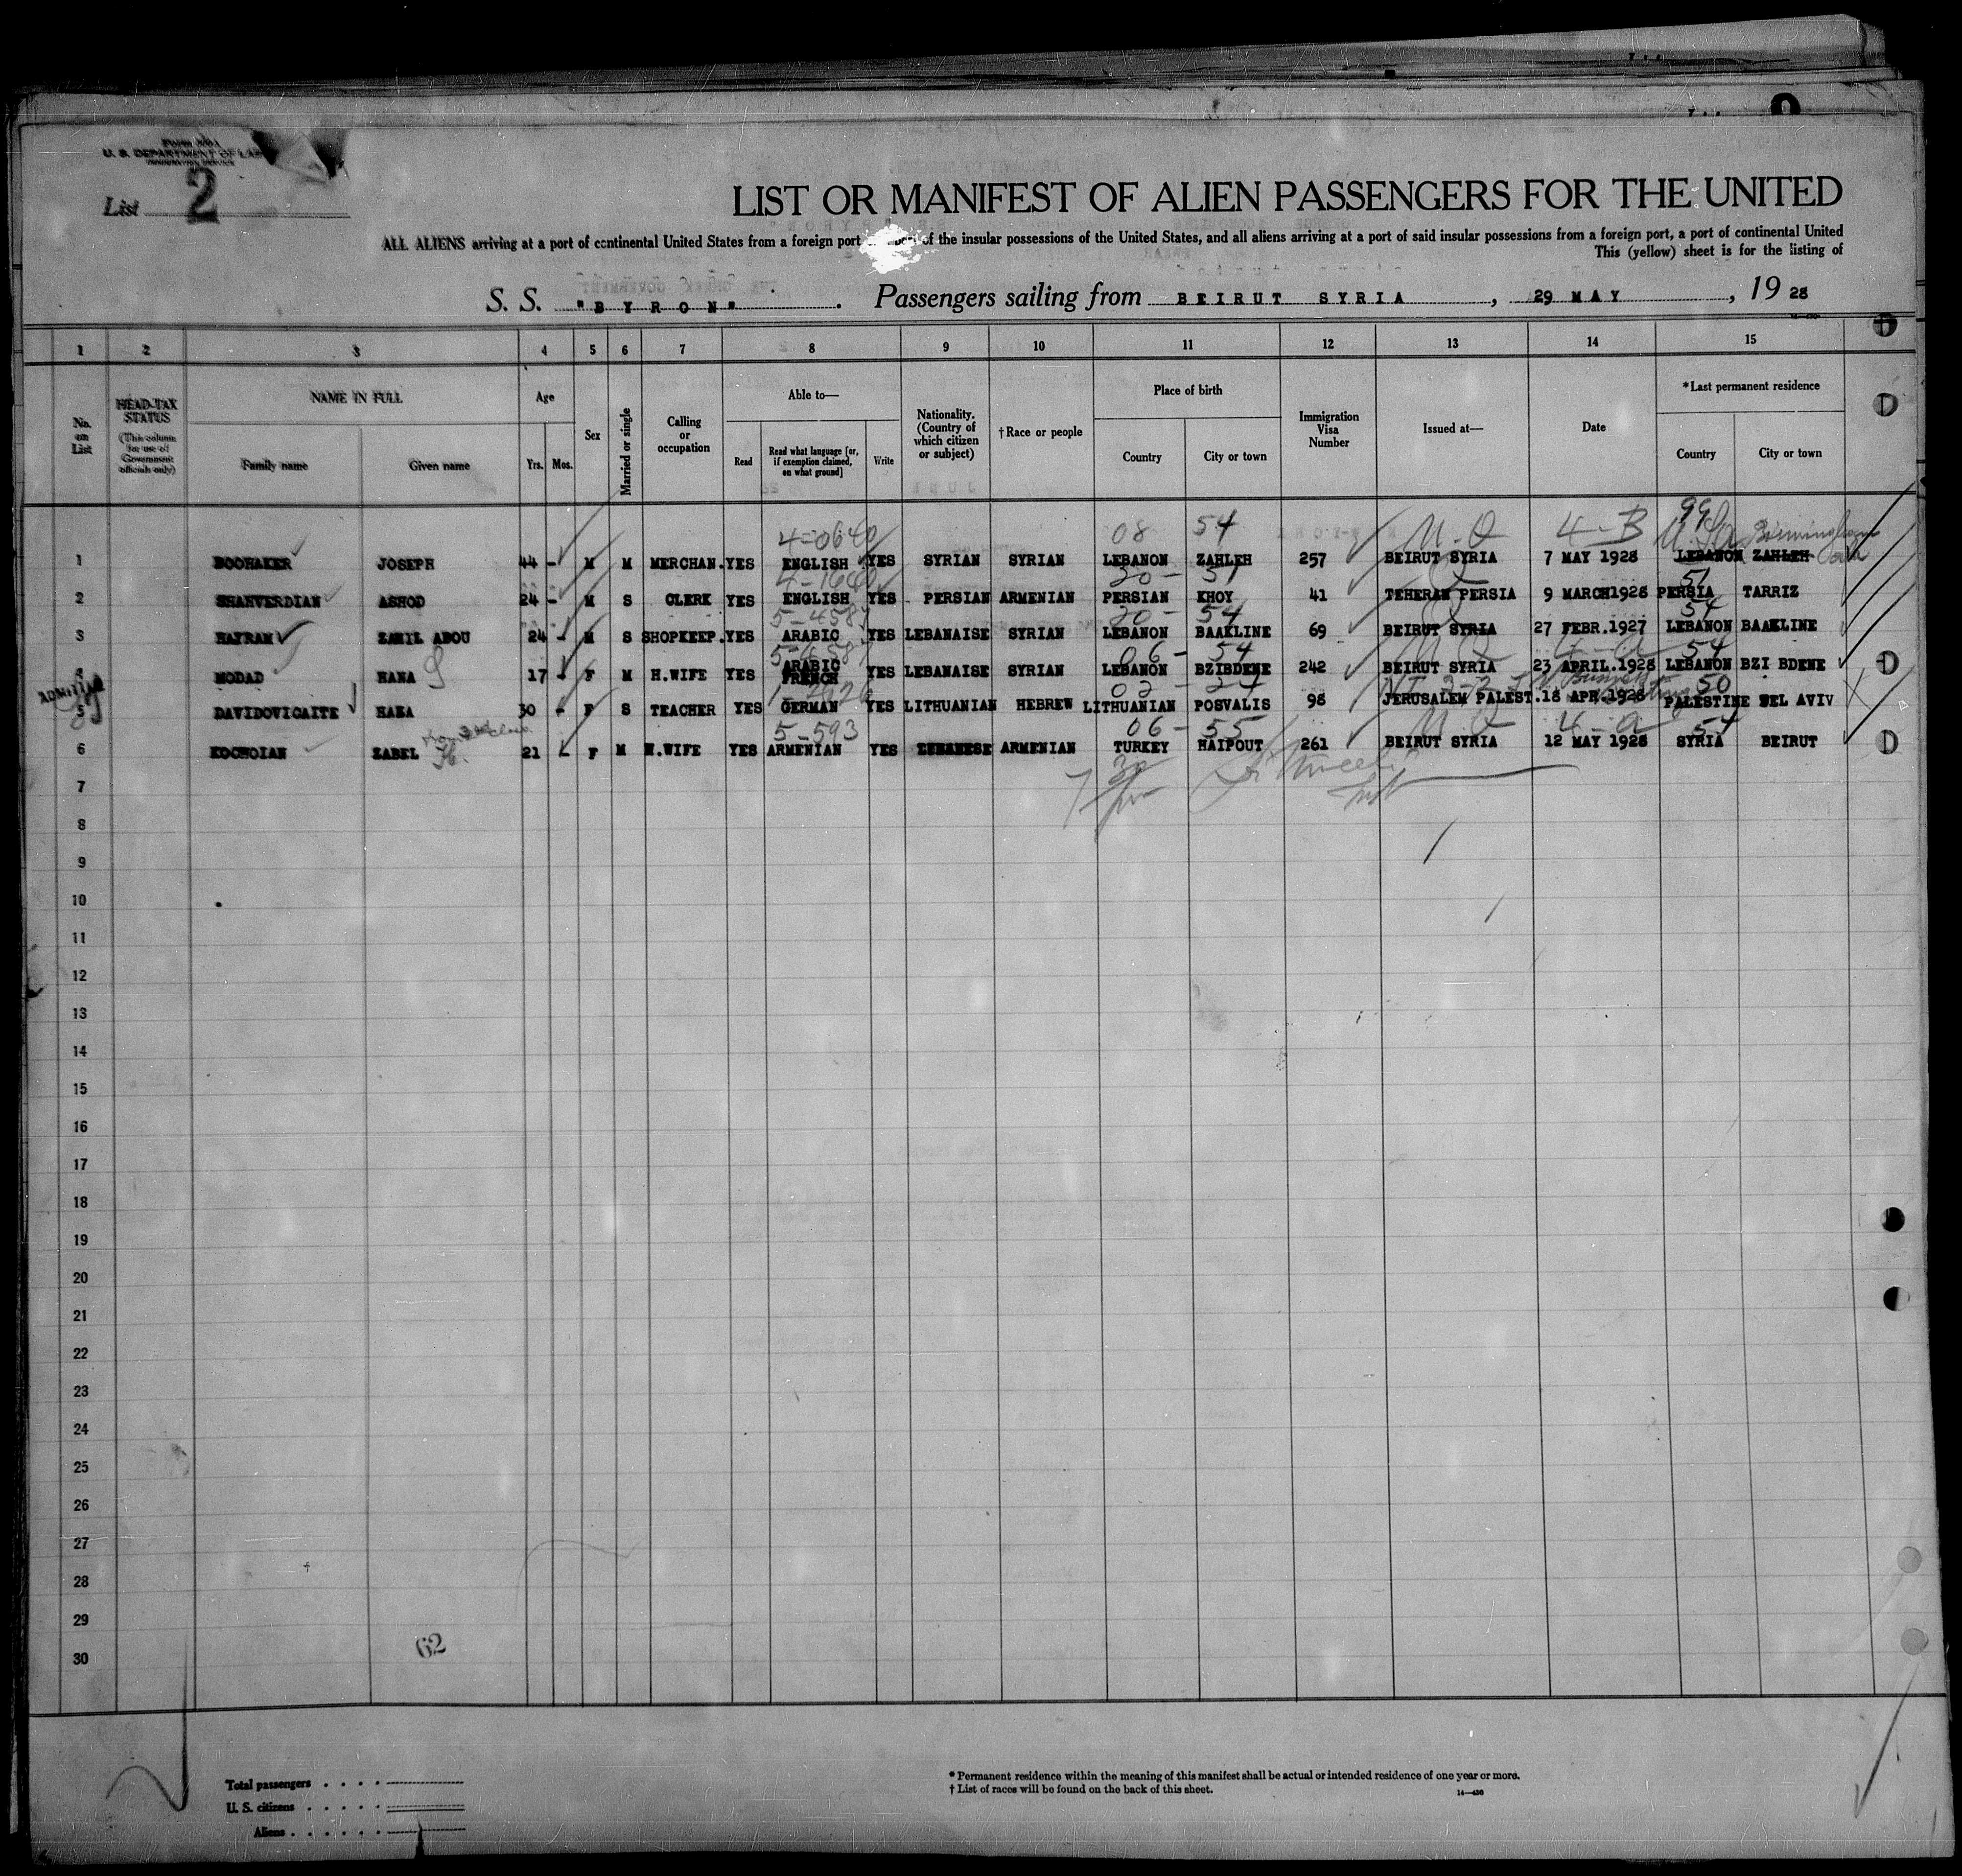 Form 500A
U. S. DEPARTMENT OF LAB
IMMIGRATION SERVICE
List 2
LIST OR MANIFEST OF ALIEN PASSENGERS FOR THE UNITED
ALL ALIENS arriving at a port of continental United States from a foreign port of the insular possessions of the United States, and all aliens arriving at a port of said insular possessions from a foreign port, a port of continental United
This (yellow) sheet is for the listing of
S. S. "BYRON". Passengers sailing from BEIRUT SYRIA, 29 MAY, 1928
1 2 3 4 5 6 7 8 9 10 11 12 13 14 15
No. on List
HEAD-TAX STATUS (This column for use of Government officials only)
NAME IN FULL
Family name Given name
Age
Yrs. Mos.
Sex
Married or single
Calling or occupation
Able to—
Read Read what language [or, if exemption claimed, on what ground] Write
Nationality. (Country of which citizen or subject)
†Race or people
Place of birth
Country City or town
Immigration Visa Number
Issued at—
Date
*Last permanent residence
Country City or town
4-0640 08 54 4-B 99
1 BOOHAKER JOSEPH 44 - M M MERCHAN. YES ENGLISH YES SYRIAN SYRIAN LEBANON ZAHLEH 257 BEIRUT SYRIA 7 MAY 1928 LEBANON ZAHLEH Birmingham
20 - 51 51
2 SHAHVERDIAN ASHOD 24 - M S CLERK YES ENGLISH YES PERSIAN ARMENIAN PERSIAN KHOY 41 TEHERAN PERSIA 9 MARCH 1928 PERSIA TARRIZ
5-4587 20 - 54 54
3 HAYRAM ZAMIL ABOU 24 - M S SHOPKEEP. YES ARABIC YES LEBANAISE SYRIAN LEBANON BAAKLINE 69 BEIRUT SYRIA 27 FEBR. 1927 LEBANON BAAKLINE
5-4587 06 - 54 54
4 MODAD HANA 17 - F M H.WIFE YES ARABIC FRENCH YES LEBANAISE SYRIAN LEBANON BZIBDENE 242 BEIRUT SYRIA 23 APRIL. 1928 LEBANON BZI BDENE
ADMITTED
50
5 DAVIDOVICAITE HANA 30 - F S TEACHER YES GERMAN YES LITHUANIAN HEBREW LITHUANIAN POSVALIS 98 JERUSALEM PALEST. 18 APR. 1928 PALESTINE TEL AVIV
5-593 06 - 55 4-a 54
6 KOCHOIAN ZABEL 21 - F M H.WIFE YES ARMENIAN YES LEBANESE ARMENIAN TURKEY HAIPOUT 261 BEIRUT SYRIA 12 MAY 1928 SYRIA BEIRUT
7
8
9
10
11
12
13
14
15
16
17
18
19
20
21
22
23
24
25
26
27
28
29
30
62
Total passengers
U. S. citizens
Aliens
* Permanent residence within the meaning of this manifest shall be actual or intended residence of one year or more.
† List of races will be found on the back of this sheet.
14—430